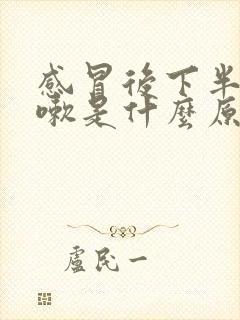 感冒後下半
嗽是什麼原
盧民一